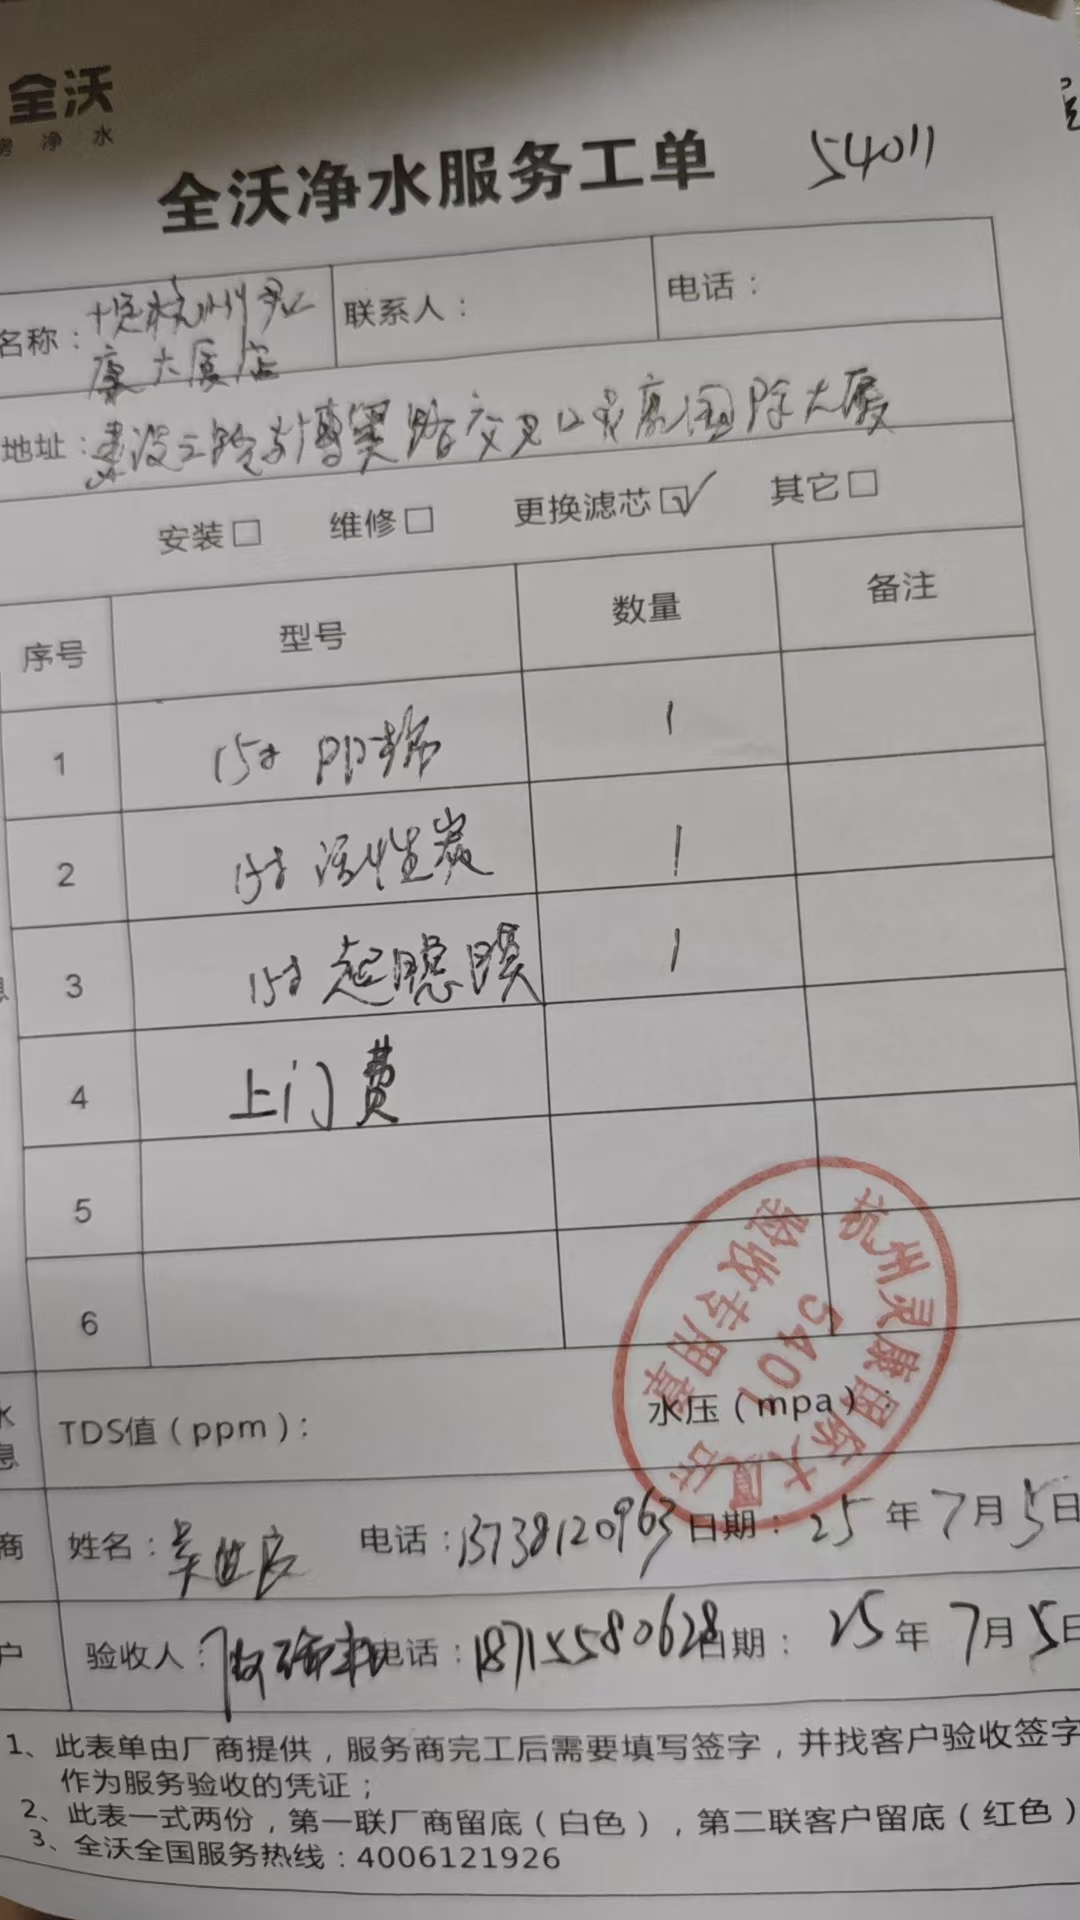 全沃
净水
全沃净水服务工单
54011
名称：
杭州灵
康大厦店
联系人：
电话：
地址：建设三路与博奥路交叉口灵康国际大厦
安装□ 维修□ 更换滤芯☑ 其它□
序号 型号 数量 备注
1 15寸 PP棉 1
2 15寸 活性炭 1
3 15寸 超滤膜 1
4 上门费
5
6
杭州灵康国际大厦店
5401
验收专用章
TDS值（ppm）： 水压（mpa）：
商 姓名： 电话：13738120963 日期：25年7月5日
户 验收人： 电话：18715580628 日期：25年7月5日
1、此表单由厂商提供，服务商完工后需要填写签字，并找客户验收签字
作为服务验收的凭证；
2、此表一式两份，第一联厂商留底（白色），第二联客户留底（红色）
3、全沃全国服务热线：4006121926